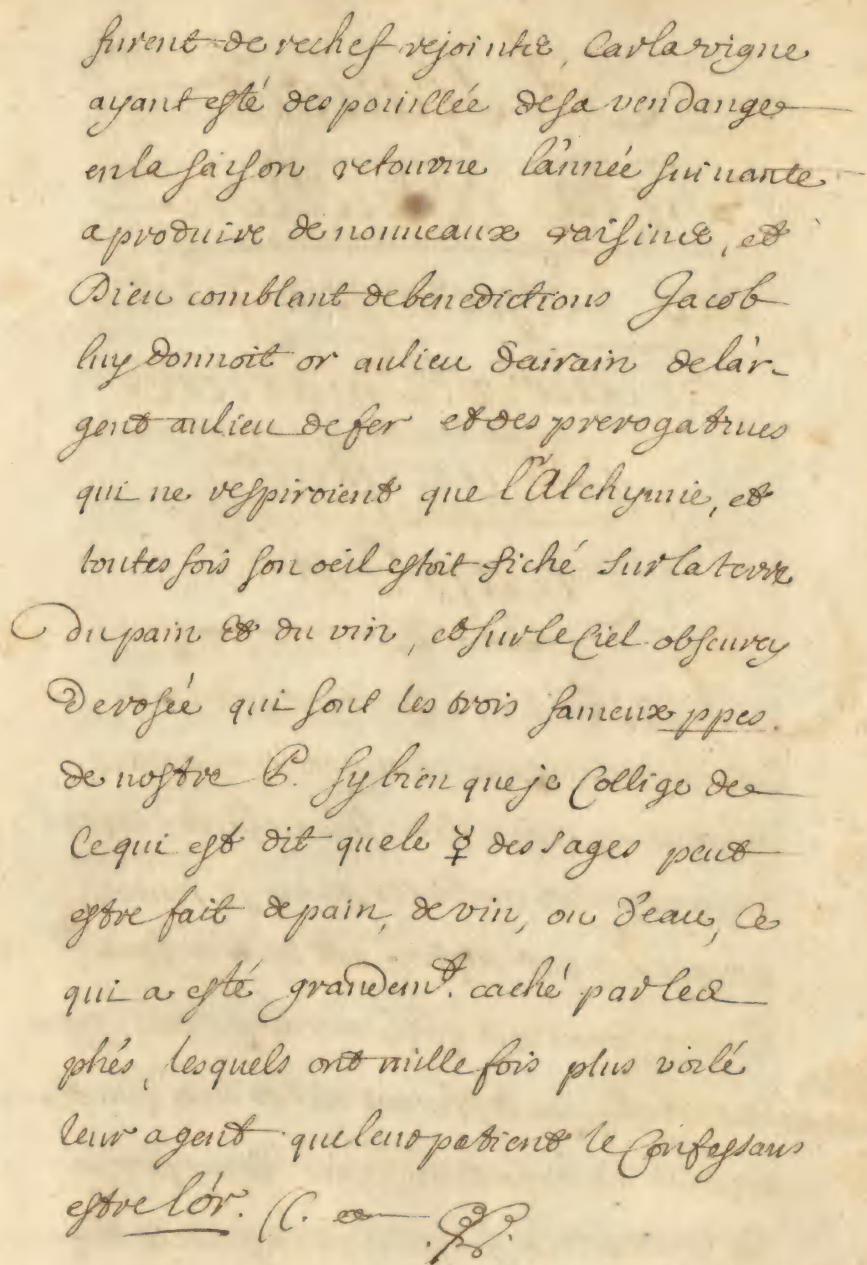 furent de rechef rejointes, Car la vigne
ayant esté despouillée de sa vendange
en la saison retourne l'année suiuante
a produire de nouueaux raisins, et
Dieu comblant de benedictions Jacob
luy donnoit or au lieu d'airain de l'ar-
gent au lieu de fer et des prerogatiues
qui ne respiroient que l'Alchymie, et
toutesfois son oeil estoit fiché sur la terre
du pain et du vin, et sur le Ciel obscurcy
de rosée qui sont les trois fameux ppes.
de nostre P. sy bien que je Collige de
Ce qui est dit que le ☿ des sages peut
estre fait de pain, de vin, ou d'eau, Ce
qui a esté grandemt. caché par les
phés, lesquels ont mille fois plus voilé
leur agent que leur patient le Confessans
estre l'or.